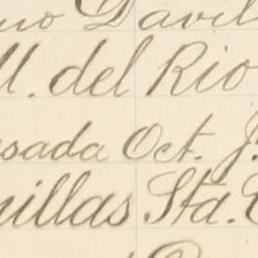 no Davil
M. del Rio
sada Oct. J.
illas Sta.